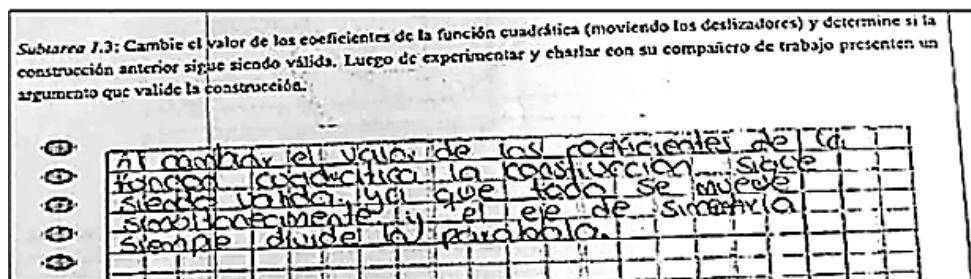 Subtarea 1.3: Cambie el valor de los coeficientes de la función cuadrática (moviendo los deslizadores) y determine si la
construcción anterior sigue siendo válida. Luego de experimentar y charlar con su compañero de trabajo presenten un
argumento que valide la construcción.
Al cambiar el valor de los coeficientes de la
función cuadrática la construcción sigue
siendo valida, ya que todo se mueve
simultaneamente y el eje de simetria
siempre divide la parábola.